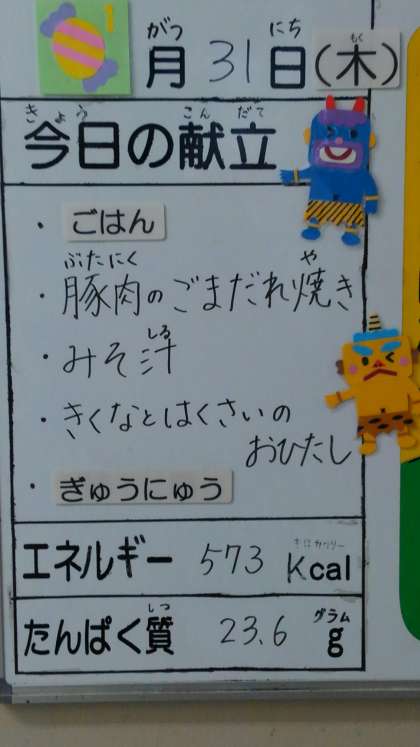 1月31日(木)
がつ にち もく
きょう こんだて
今日の献立
・ごはん
ぶたにく や
・豚肉のごまだれ焼き
しる
・みそ汁
・きくなとはくさいの
おひたし
・ぎゅうにゅう
キロカロリー
エネルギー 573 Kcal
しつ グラム
たんぱく質 23.6 g